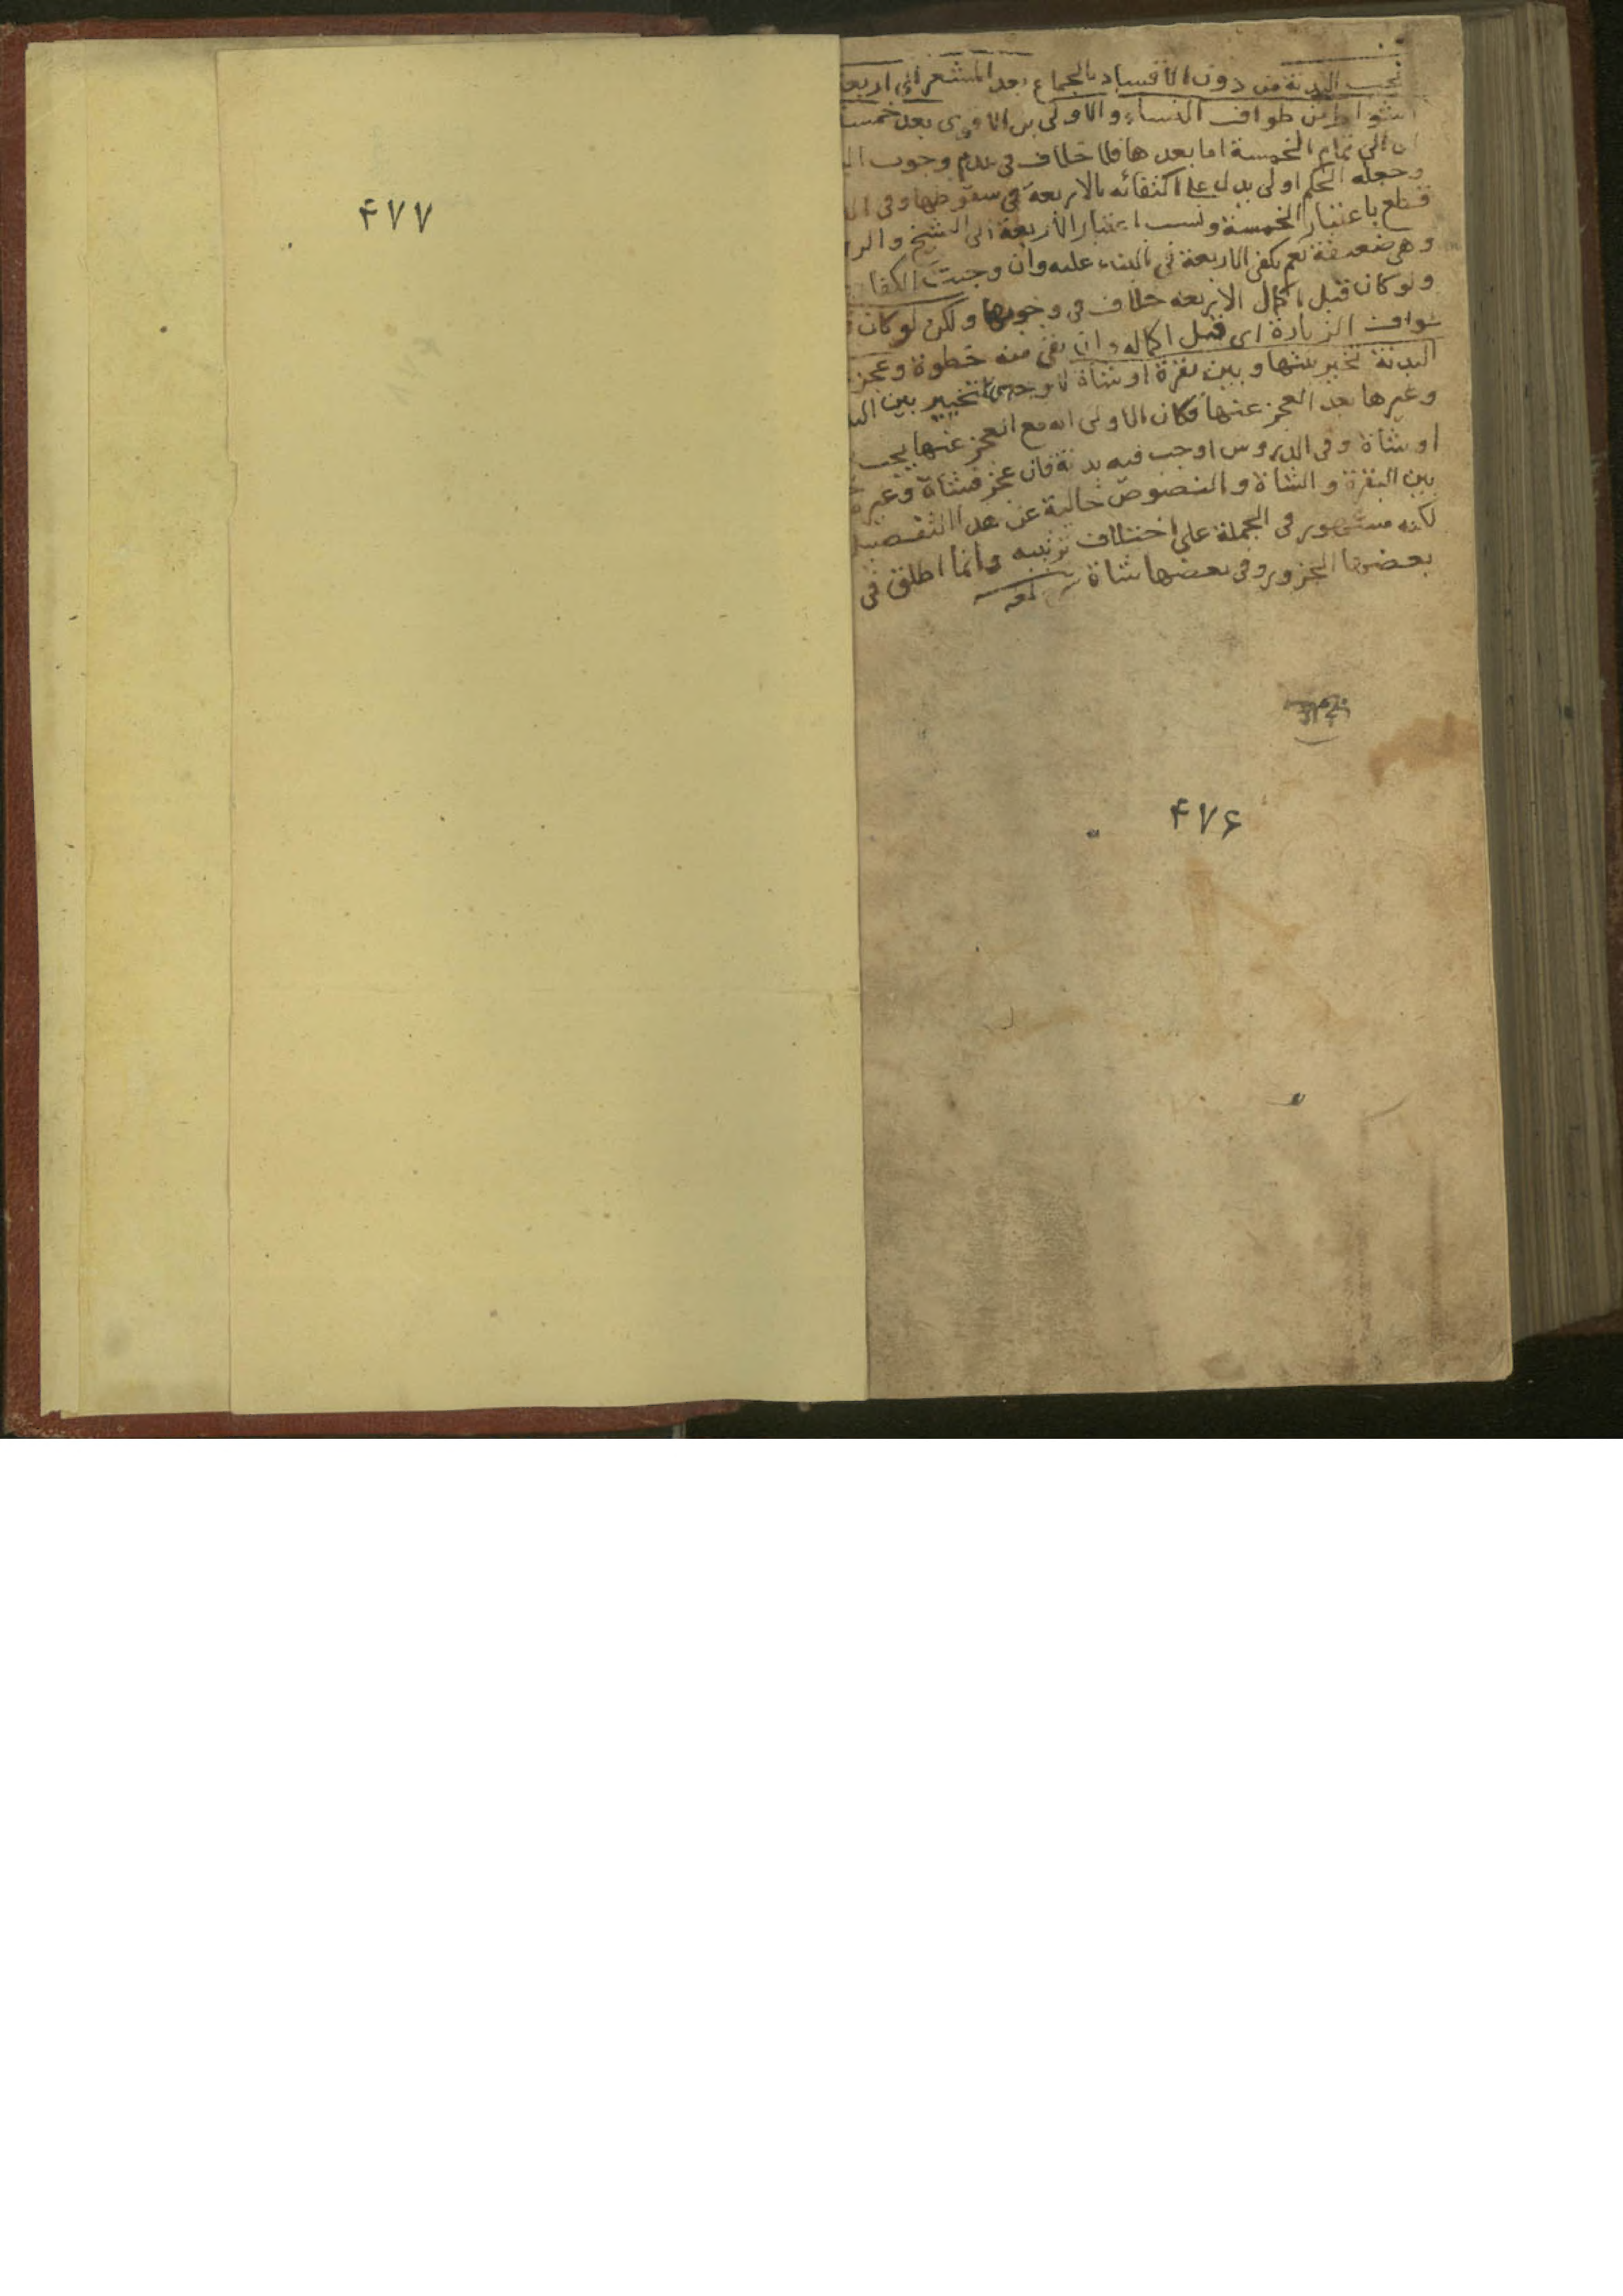 تجب البدنة من دون الافساد بالجماع بعد المشعر الى اربعة
اشواط من طواف النساء والاولى بل الاقوى بعد خمسة
اى الى تمام الخمسة اما بعدها فلا خلاف فى عدم وجوب
وجعله الحكم اولى يدل على اكتفائه بالاربعة فى سقوطها وفى
قطع باعتبار الخمسة ونسب اعتبار الاربعة الى الشيخ والر
وهى ضعيفة نعم يكفى الاربعة فى البناء عليه وان وجبت الكفا
ولو كان قبل اكمال الاربعة خلاف فى وجوبها ولكن لو كان
طواف الزيارة اى قبل اكماله وان بقى منه خطوة وعجز
البدنة تخير بينها وبين بقرة او شاة لا وجه للتخيير بين
وغيرها بعد العجز عنها فكان الاولى انه مع العجز عنها يجب
او شاة وفى الدروس اوجب فيه بدنة فان عجز فشاة وغيره
بين البقرة والشاة والنصوص خالية عن هذا التفصيل
لكنه مشهور فى الجملة على اختلاف ترتيبه وانما اطلق فى
بعضها الجزور وفى بعضها شاة لمعه
۴۷۶
۴۷۷